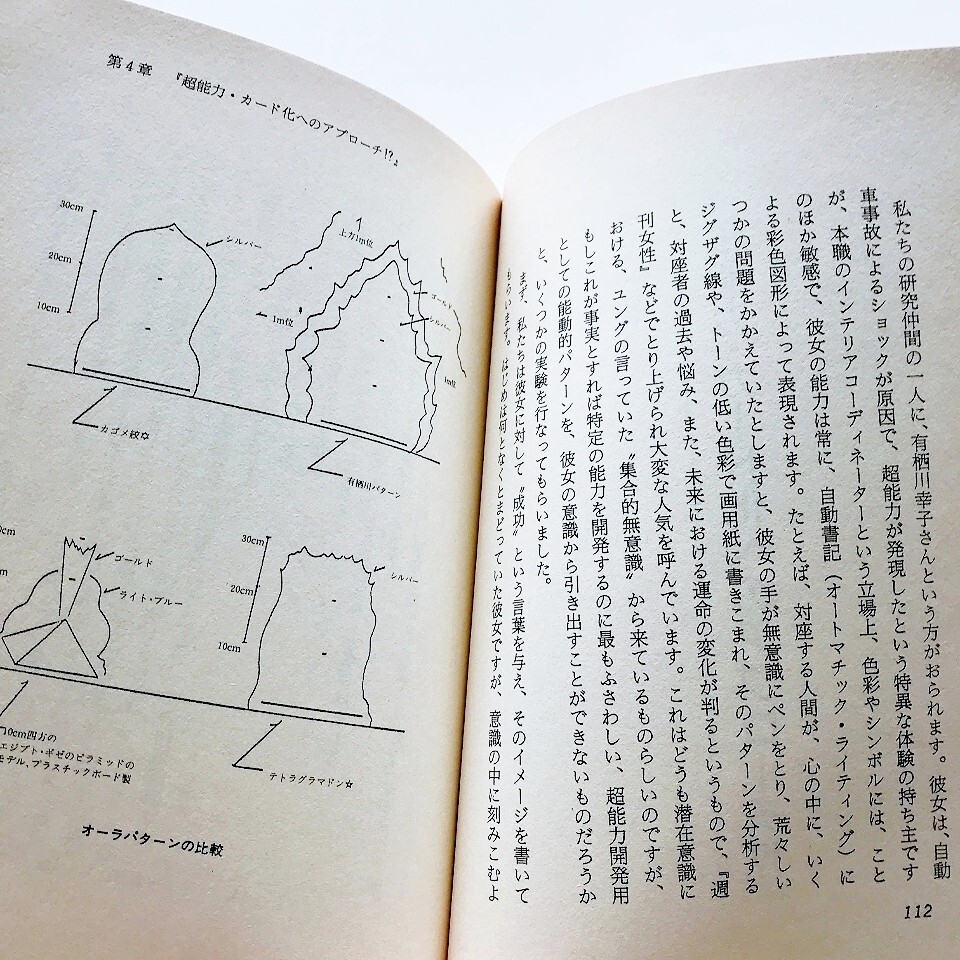 私たちの研究仲間の一人に、有栖川幸子さんという方がおられます。彼女は、自動
車事故によるショックが原因で、超能力が発現したという特異な体験の持ち主です
が、本職のインテリアコーディネーターという立場上、色彩やシンボルには、こと
のほか敏感で、彼女の能力は常に、自動書記（オートマチック・ライティング）に
よる彩色図形によって表現されます。たとえば、対座する人間が、心の中に、いく
つかの問題をかかえていたとしますと、彼女の手が無意識にペンをとり、荒々しい
ジグザグ線や、トーンの低い色彩で画用紙に書きこまれ、そのパターンを分析する
と、対座者の過去や悩み、また、未来における運命の変化が判るというもので、『週
刊女性』などでとり上げられ大変な人気を呼んでいます。これはどうも潜在意識に
おける、ユングの言っていた〝集合的無意識〟から来ているものらしいのですが、
もしこれが事実とすれば特定の能力を開発するのに最もふさわしい、超能力開発用
としての能動的パターンを、彼女の意識から引き出すことができないものだろうか
と、いくつかの実験を行なってもらいました。
まず、私たちは彼女に対して〝成功〟という言葉を与え、そのイメージを書いて
もらいます。はじめは何となくとまどっていた彼女ですが、意識の中に刻みこむよ
112
第4章 『超能力・カード化へのアプローチ!?』
30cm
20cm
10cm
シルバー
カゴメ紋章
上方1m位
1m位
ゴールド
シルバー
1m位
有栖川パターン
ゴールド
ライト・ブルー
10cm四方の
エジプト・ギゼのピラミッドの
モデル、プラスチックボード製
30cm
20cm
10cm
シルバー
テトラグラマドン☆
オーラパターンの比較